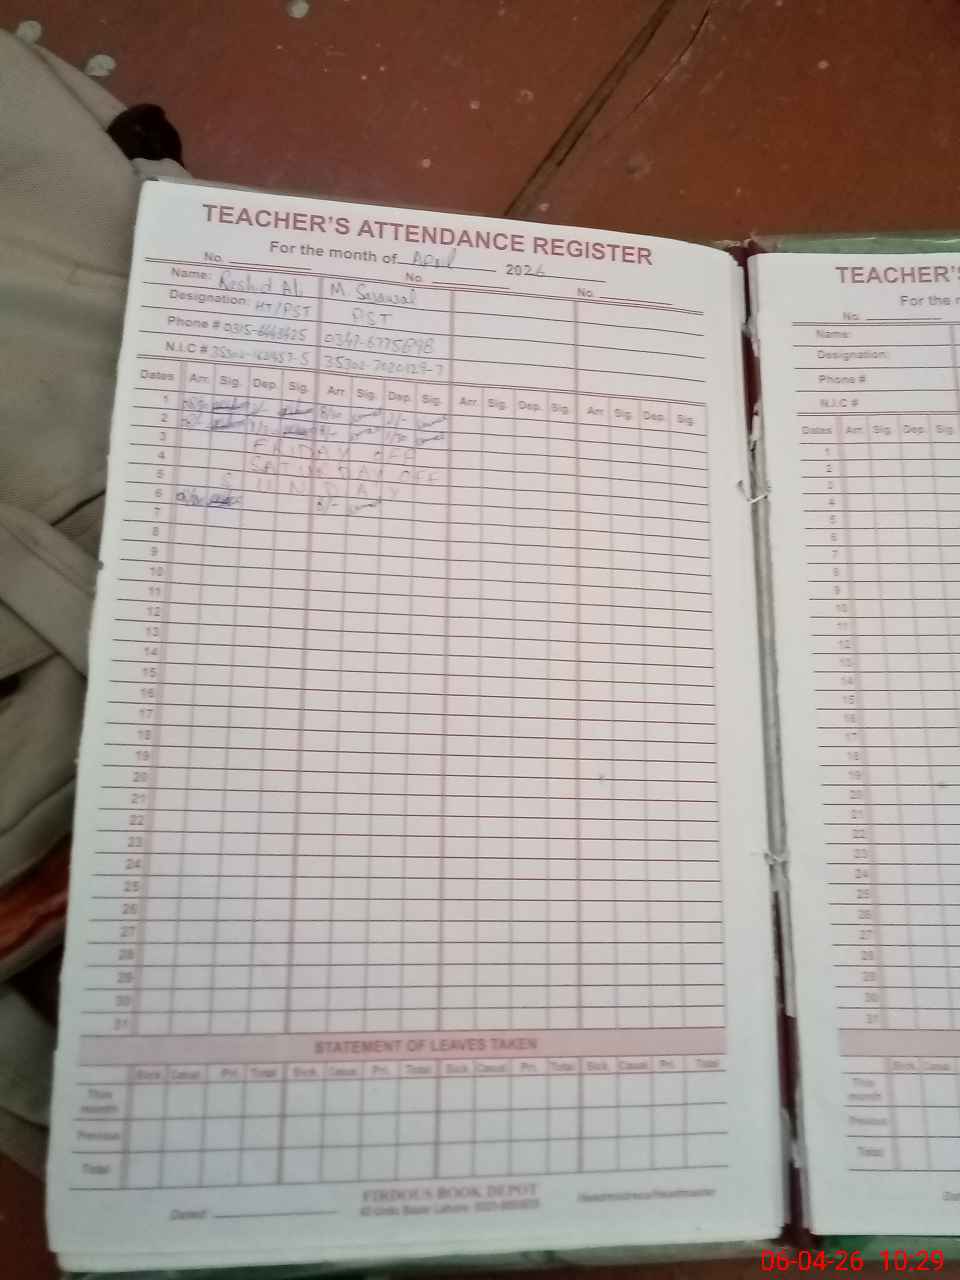 TEACHER'S ATTENDANCE REGISTER
For the month of April 2026
No. No. No.
Name: Rashid Ali M. Sarawal
Designation: HT/PST PST
Phone # 0315-6443425 0347-6775698
N.I.C # 35302-7020129-7
Dates Arr. Sig. Dep. Sig. Arr. Sig. Dep. Sig. Arr. Sig. Dep. Sig. Arr. Sig. Dep. Sig.
1
2
3 FRIDAY OFF
4 SATURDAY OFF
5 SUNDAY
6 8/-
7
8
9
10
11
12
13
14
15
16
17
18
19
20
21
22
23
24
25
26
27
28
29
30
31
STATEMENT OF LEAVES TAKEN
Sick. Casual Pri. Total Sick. Casual Pri. Total Sick. Casual Pri. Total Sick. Casual Pri. Total
This month
Previous
Total
Dated:
FIRDOUS BOOK DEPOT
Headmistress/Headmaster
TEACHER'S
For the
No.
Name:
Designation:
Phone #
N.I.C #
Dates Arr. Sig. Dep. Sig.
1
2
3
4
5
6
7
8
9
10
11
12
13
14
15
16
17
18
19
20
21
22
23
24
25
26
27
28
29
30
31
Sick. Casual
This month
Previous
Total
06-04-26 10:29